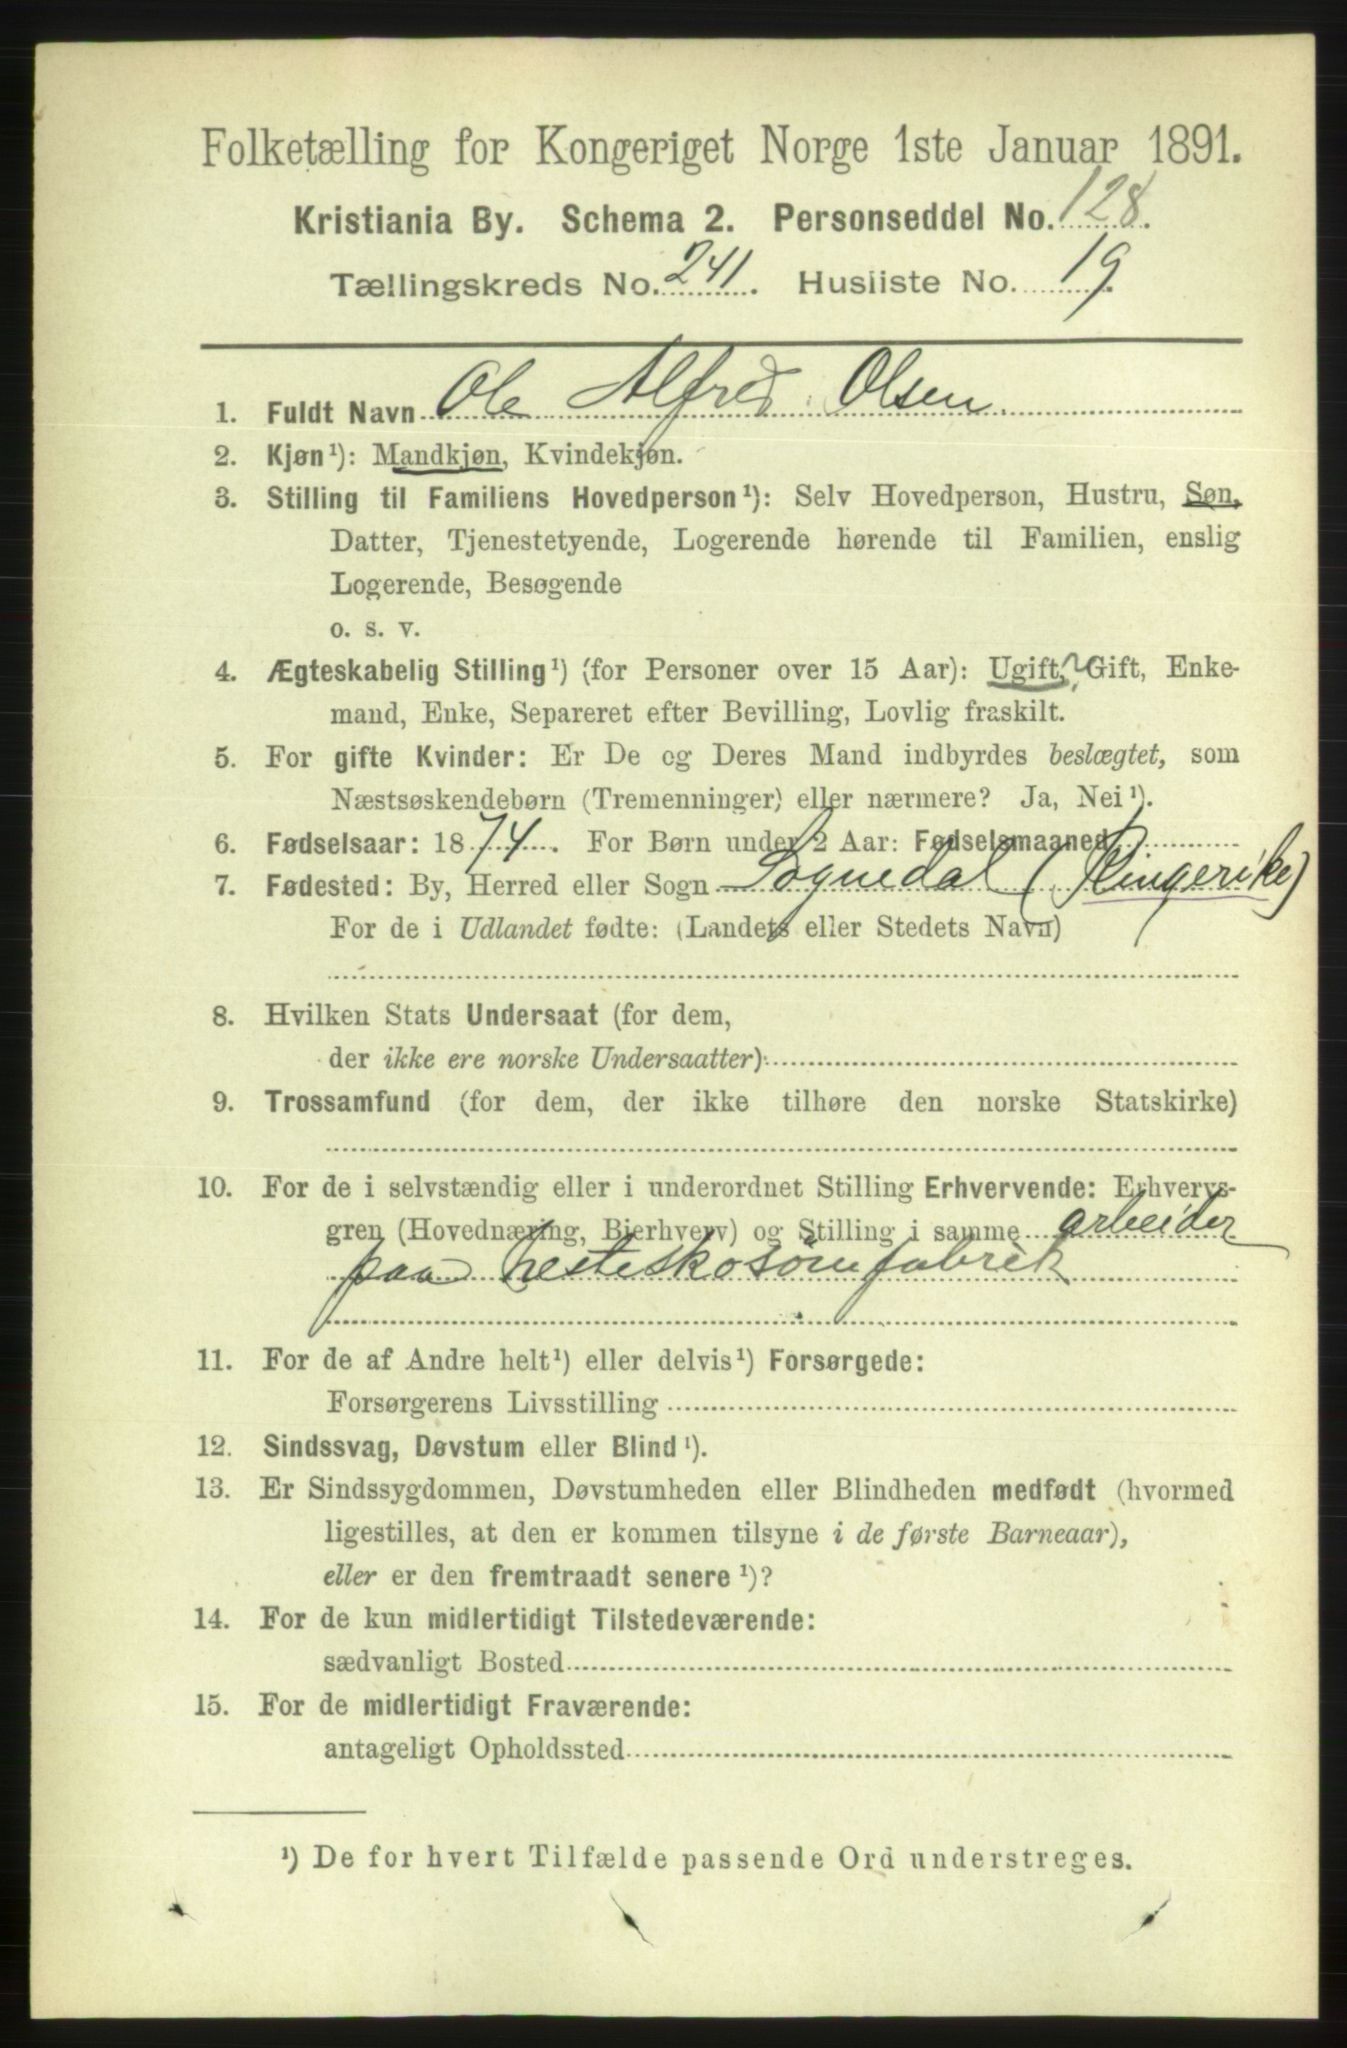 Folketælling for Kongeriget Norge 1ste Januar 1891.
Kristiania By. Schema 2. Personseddel No. 128.
Tællingskreds No. 241. Husliste No. 19.
1. Fuldt Navn Ole Alfred Olsen
2. Kjøn¹): Mandkjøn, Kvindekjøn.
3. Stilling til Familiens Hovedperson¹): Selv Hovedperson, Hustru, Søn,
Datter, Tjenestetyende, Logerende hørende til Familien, enslig
Logerende, Besøgende
o. s. v.
4. Ægteskabelig Stilling¹) (for Personer over 15 Aar): Ugift, Gift, Enke-
mand, Enke, Separeret efter Bevilling, Lovlig fraskilt.
5. For gifte Kvinder: Er De og Deres Mand indbyrdes beslægtet, som
Næstsøskendebørn (Tremenninger) eller nærmere? Ja, Nei¹).
6. Fødselsaar: 1874. For Børn under 2 Aar: Fødselsmaaned
7. Fødested: By, Herred eller Sogn Sognedal (Ringerike)
For de i Udlandet fødte: (Landets eller Stedets Navn)
8. Hvilken Stats Undersaat (for dem,
der ikke ere norske Undersaatter):
9. Trossamfund (for dem, der ikke tilhøre den norske Statskirke)
10. For de i selvstændig eller i underordnet Stilling Erhvervende: Erhvervs-
gren (Hovednæring, Bierhverv) og Stilling i samme arbeider
paa hesteskosømfabrik
11. For de af Andre helt¹) eller delvis¹) Forsørgede:
Forsørgerens Livsstilling
12. Sindssvag, Døvstum eller Blind¹).
13. Er Sindssygdommen, Døvstumheden eller Blindheden medfødt (hvormed
ligestilles, at den er kommen tilsyne i de første Barneaar),
eller er den fremtraadt senere¹)?
14. For de kun midlertidigt Tilstedeværende:
sædvanligt Bosted
15. For de midlertidigt Fraværende:
antageligt Opholdssted
¹) De for hvert Tilfælde passende Ord understreges.